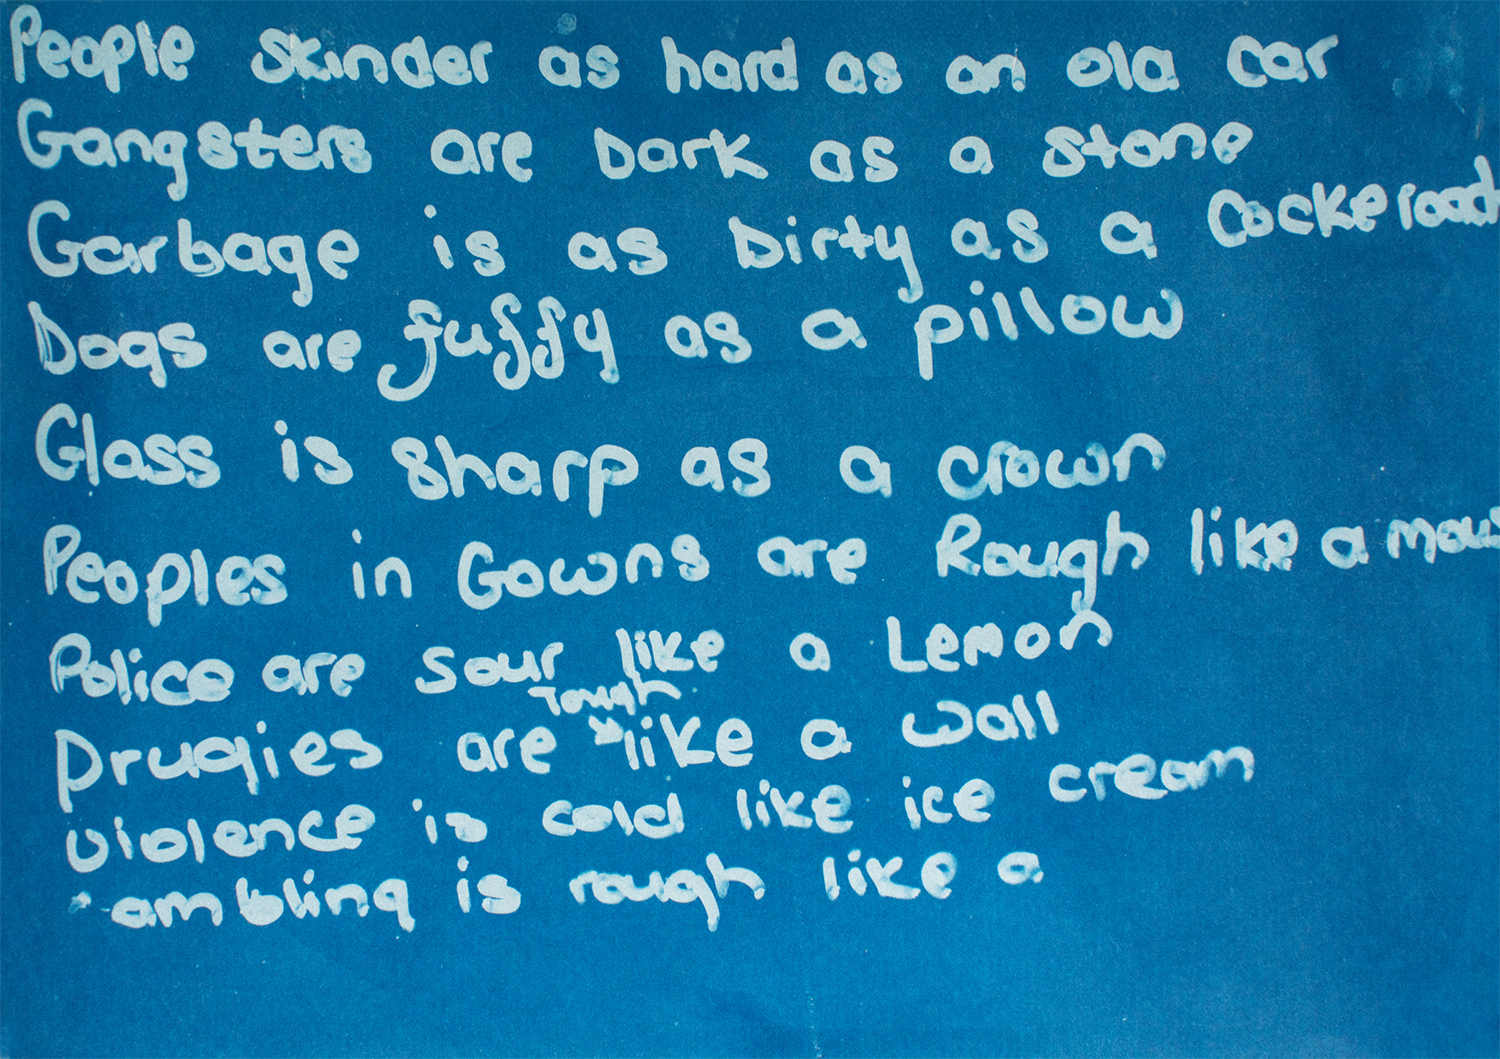 People skinder as hard as an old car
Gangsters are Dark as a stone
Garbage is as Dirty as a Cockeroach
Dogs are fuffy as a pillow
Glass is sharp as a crown
Peoples in Gowns are Rough like a mous
Police are sour like a Lemon
Tough
Drugies are like a wall
violence is cold like ice cream
ambling is rough like a